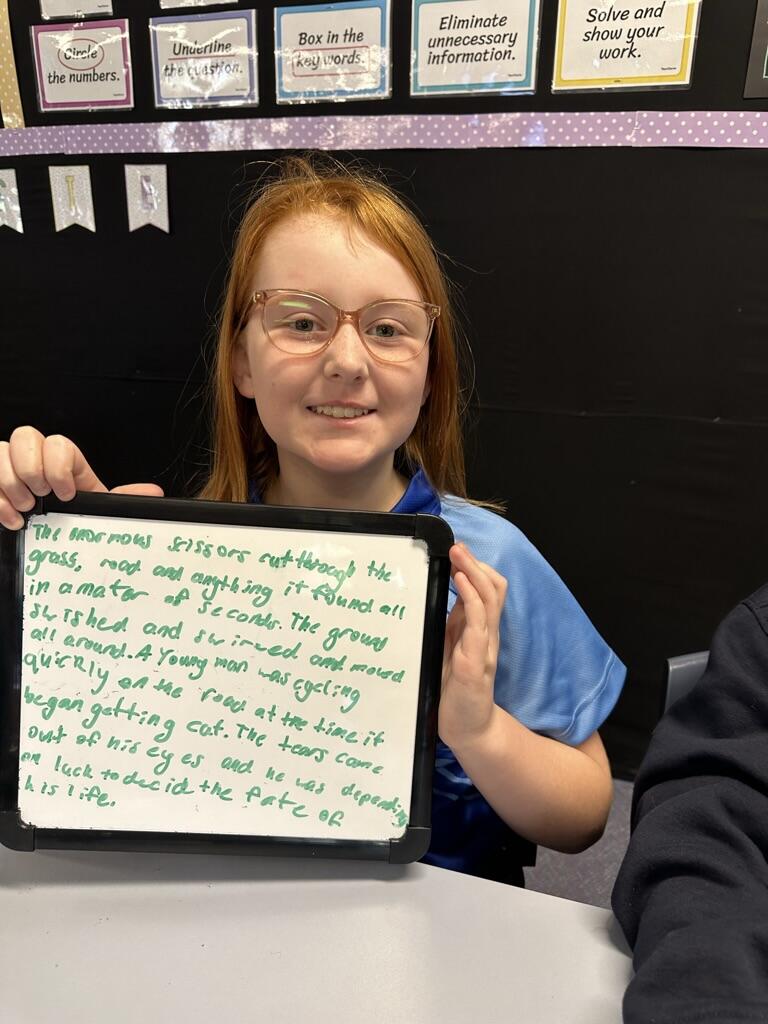 Circle
the numbers.
Underline
the question.
Box in the
key words.
Eliminate
unnecessary
information.
Solve and
show your
work.
The enormous scissors cut through the
grass, road and anything it found all
in a mater of seconds. The ground
swished and swirved and moved
all around. A Young man was cycling
quickly on the road at the time it
began getting cut. The tears came
out of his eyes and he was depending
on luck to decide the fate of
his life.